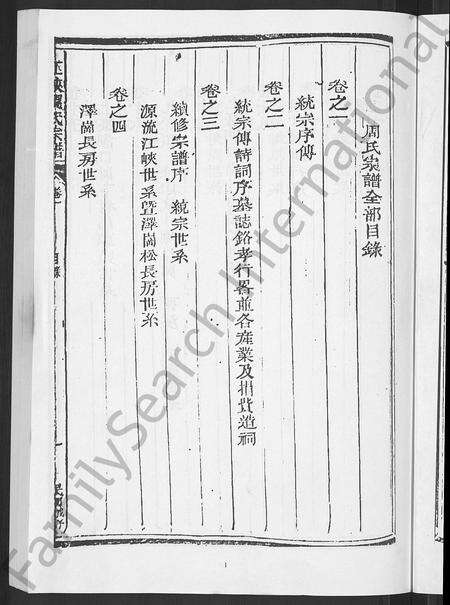 周氏宗譜全部目錄
卷之一
統宗序傳
卷之二
統宗傳詩詞序墓誌銘孝行畧並各産業及捐貲造祠
卷之三
續修宗譜序 統宗世系
源流江峽世系曁澤崗松長房世系
卷之四
澤崗長房世系
氏宗譜
卷一
目錄
一
1
FamilySearch International